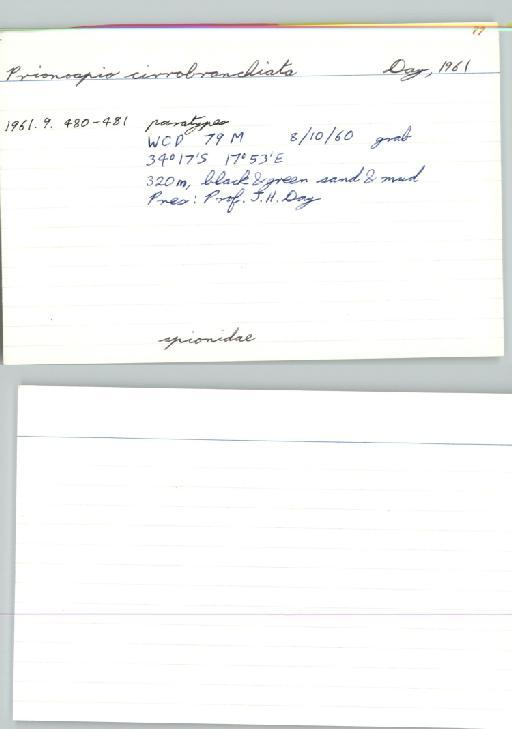 77
Prionospio cirrobranchiata Day, 1961
1961.9.480-481 paratypes
WCD 79M 8/10/60 grab
34°17'S 17°53'E
320m, black & green sand & mud
Pres: Prof. J.H. Day
spionidae